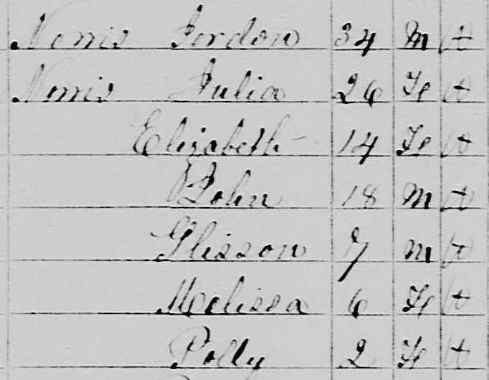 Norris Jordon 34 M
Norris Julia 26 Fe
Elizabeth 14 Fe
John 18 M
Glisson 7 M
Melissa 6 Fe
Polly 2 Fe